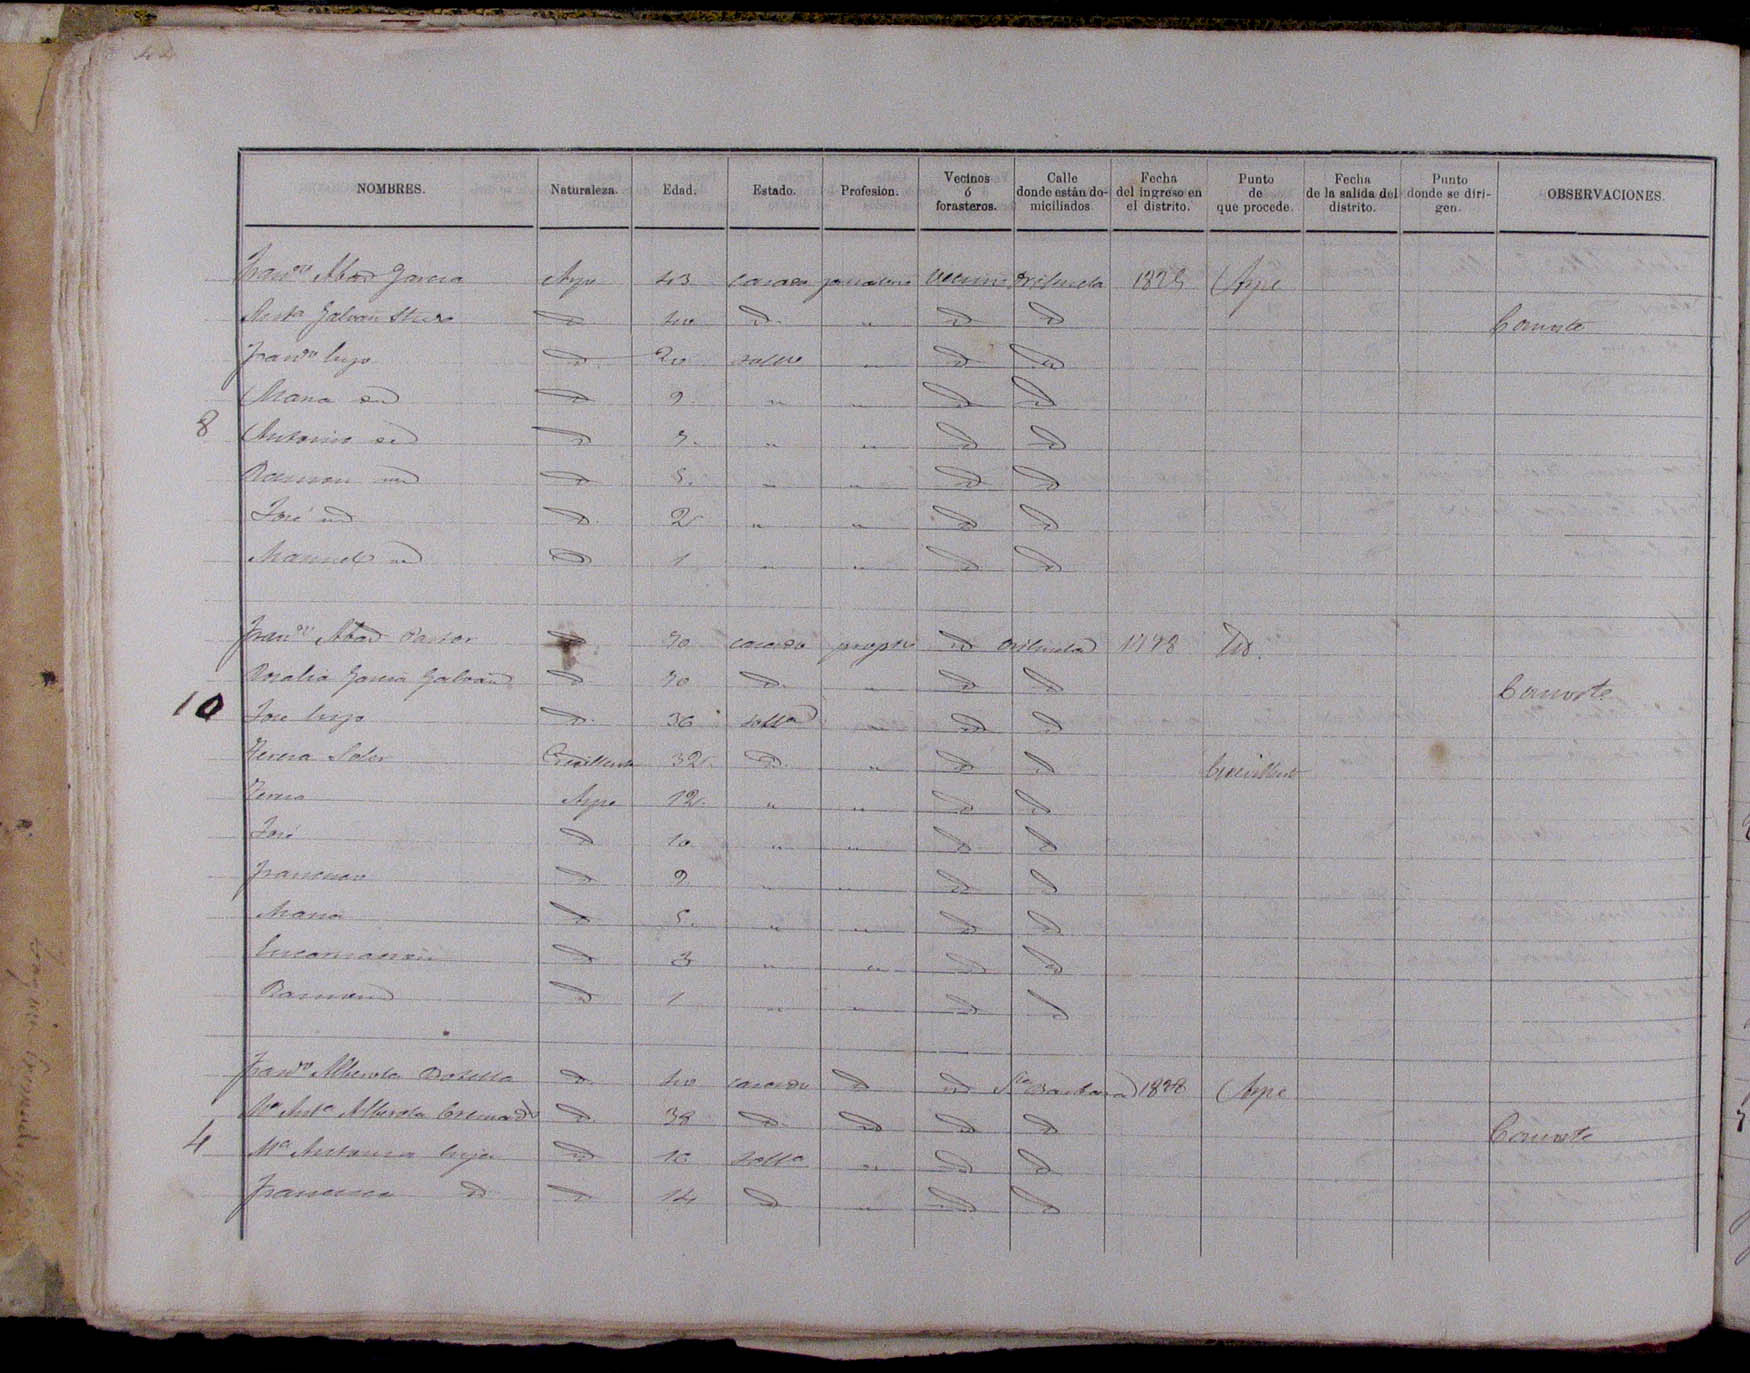 NOMBRES. Naturaleza. Edad. Estado. Profesion. Vecinos ó forasteros. Calle donde están domiciliados Fecha del ingreso en el distrito. Punto de que procede. Fecha de la salida del distrito. Punto donde se dirigen. OBSERVACIONES.
Franco Abad Garcia Aspe 43 casado jornalero vecino Orihuela Aspe
Galvañ id 40 id " id id Consorte
Franco hijo id 20 soltro " id id
Maria id id 9 " " id id
8 Antonio id id 7 " " id id
Ramon id id 5 " " id id
José id id 2 " " id id
Manuel id id 1 " " id id
Franco Abad Pastor id 70 casado propio id Orihuela id
Rosalia Garcia Galvañ id 70 id " id id Consorte
10 Jose hijo id 36 id id
Teresa Soler Crevillente 32 id " id id Crevillente
Teresa Aspe 12 " " id id
José id 10 " " id id
Francisco id 9 " " id id
Maria id 5 " " id id
Encarnacion id 3 " " id id
Ramon id 1 " " id id
Franco Alberola Botella id 40 casado id id Sta Barbara 1828 Aspe
Ma Anta Alberola Cremades id 38 id id id id Consorte
4 Ma Antonia hija id 16 solta " id id
Francisca id id 14 id " id id